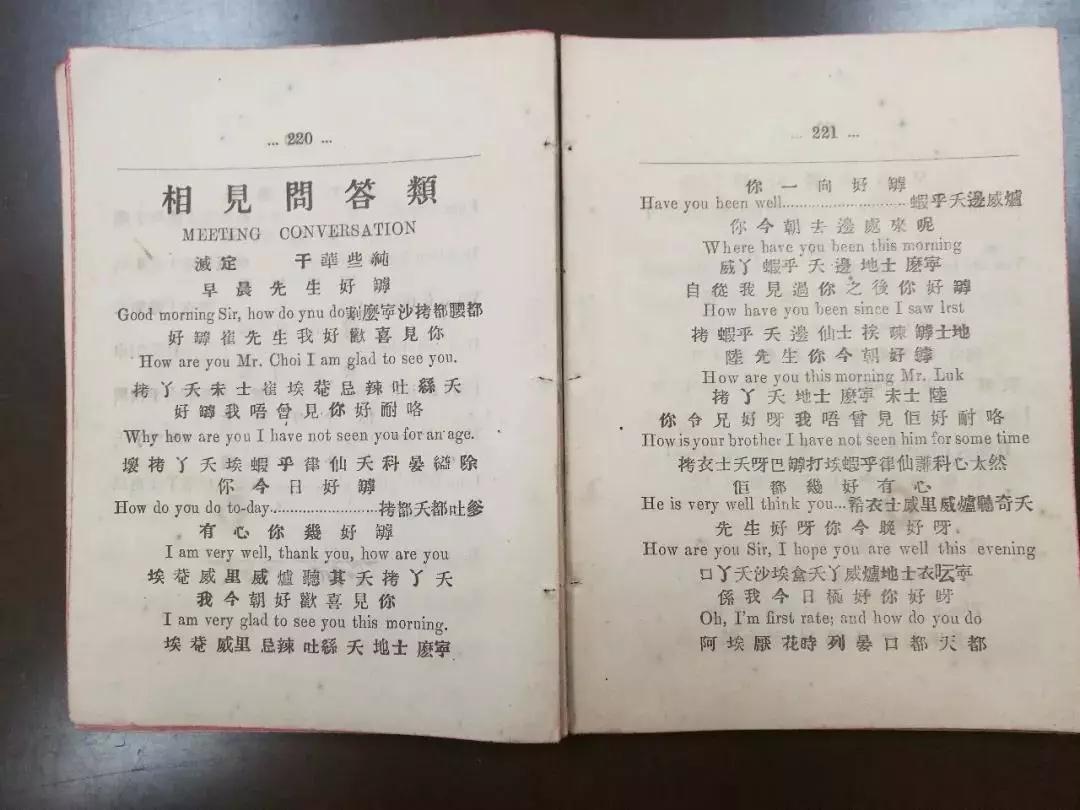 ... 220 ...
相見問答類
MEETING CONVERSATION
滅定 干華些𥿄
早晨先生好罅
Good morning Sir, how do ynu do割麽寧沙拷都腰都
好罅崔先生我好歡喜見你
How are you Mr. Choi I am glad to see you.
拷丫夭未士崔埃菴忌辣吐絲夭
好罅我唔曾見你好耐咯
Why how are you I have not seen you for an age.
壞拷丫夭埃蝦乎律仙夭科晏縊除
你今日好罅
How do you do to-day........................拷都夭都吐爹
有心你幾好罅
I am very well, thank you, how are you
埃菴威里威爐聽其夭拷丫夭
我今朝好歡喜見你
I am very glad to see you this morning.
埃菴威里忌辣吐絲夭地士麽寧
... 221 ...
你一向好罅
Have you been well.........................蝦乎夭邊威爐
你今朝去邊處來呢
Where have you been this morning
威丫蝦乎夭邊地士麽寧
自從我見過你之後你好罅
How have you been since I saw lrst
拷蝦乎夭邊仙士挨疎罅士地
陸先生你今朝好罅
How are you this morning Mr. Luk
拷丫夭地士麽寧未士陸
你令兄好呀我唔曾見佢好耐咯
How is your brother I have not seen him for some time
拷衣士夭呀巴罅打埃蝦乎律仙謙科心太然
佢都幾好有心
He is very well think you...希衣士威里威爐聽奇夭
先生好呀你今晚好呀
How are you Sir, I hope you are well this evening
口丫夭沙埃盒夭丫威爐地士衣呍寧
係我今日極好你好呀
Oh, I'm first rate; and how do you do
阿埃厭花時列晏口都夭都